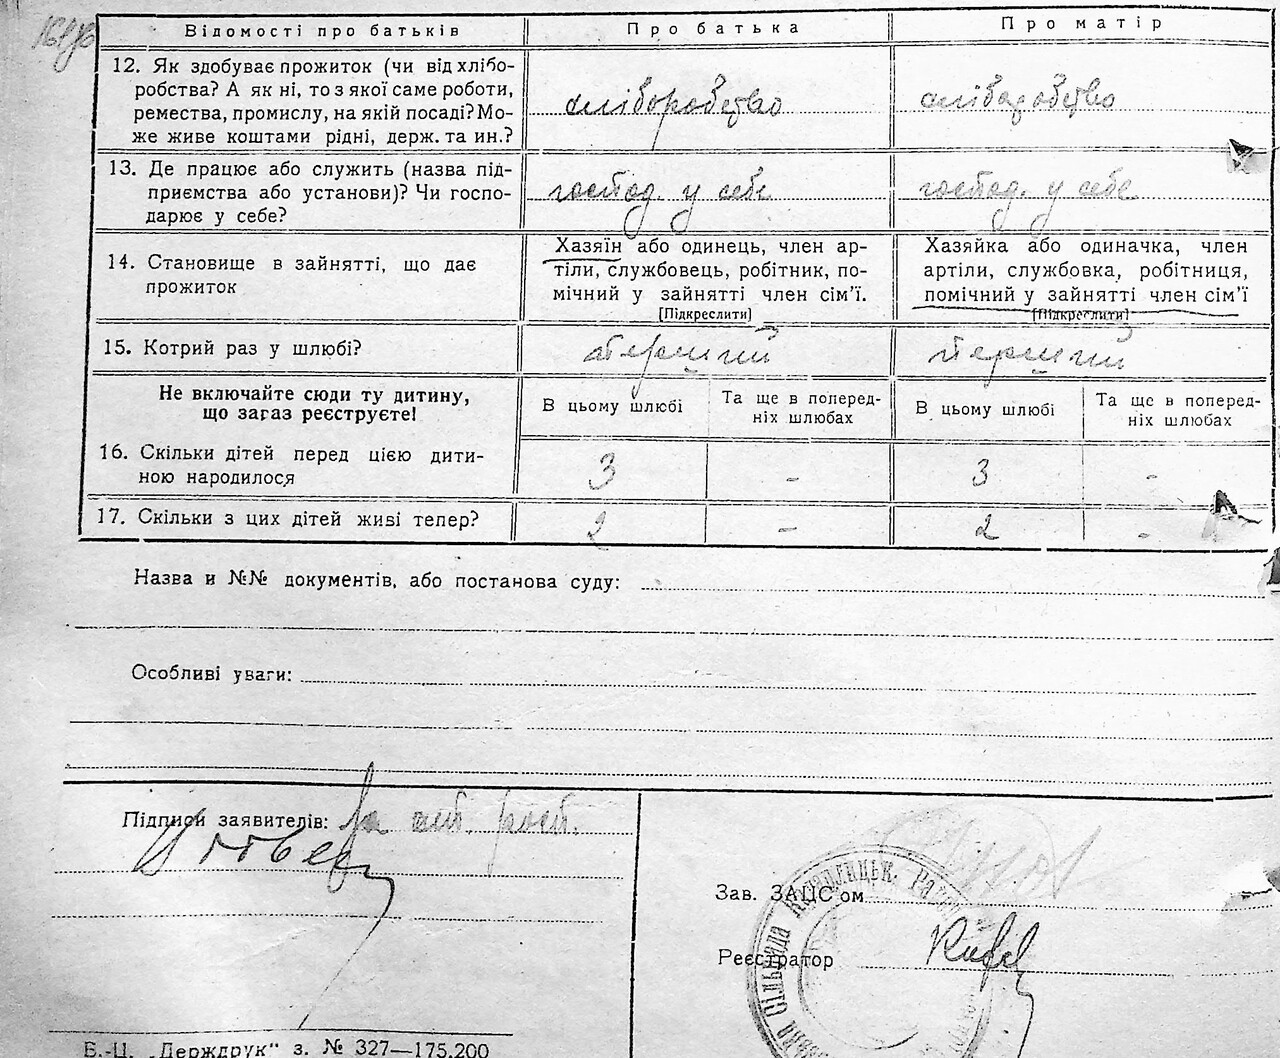 Відомості про батьків Про батька Про матір
12. Як здобуває прожиток (чи від хлібо-
робства? А як ні, то з якої саме роботи,
ремества, промислу, на якій посаді? Мо-
же живе коштами рідні, держ. та ин.?
хліборобство хліборобство
13. Де працює або служить (назва під-
приємства або установи)? Чи госпо-
дарює у себе?
господ. у себе господ. у себе
14. Становище в зайнятті, що дає
прожиток
Хазяїн або одинець, член ар-
тіли, службовець, робітник, по-
мічний у зайнятті член сім'ї.
[Підкреслити]
Хазяйка або одиначка, член
артіли, службовка, робітниця,
помічний у зайнятті член сім'ї
[Підкреслити]
15. Котрий раз у шлюбі? перший перший
Не включайте сюди ту дитину,
що зараз реєструєте!
В цьому шлюбі
Та ще в поперед-
ніх шлюбах
В цьому шлюбі
Та ще в поперед-
ніх шлюбах
16. Скільки дітей перед цією дити-
ною народилося
3 - 3 -
17. Скільки з цих дітей живі тепер? 2 - 2 -
Назва и №№ документів, або постанова суду:
Особливі уваги:
Підписи заявителів: За
Зав. ЗАЦС'ом
Реєстратор
В.-Ц. „Держдрук" з. № 327—175.200